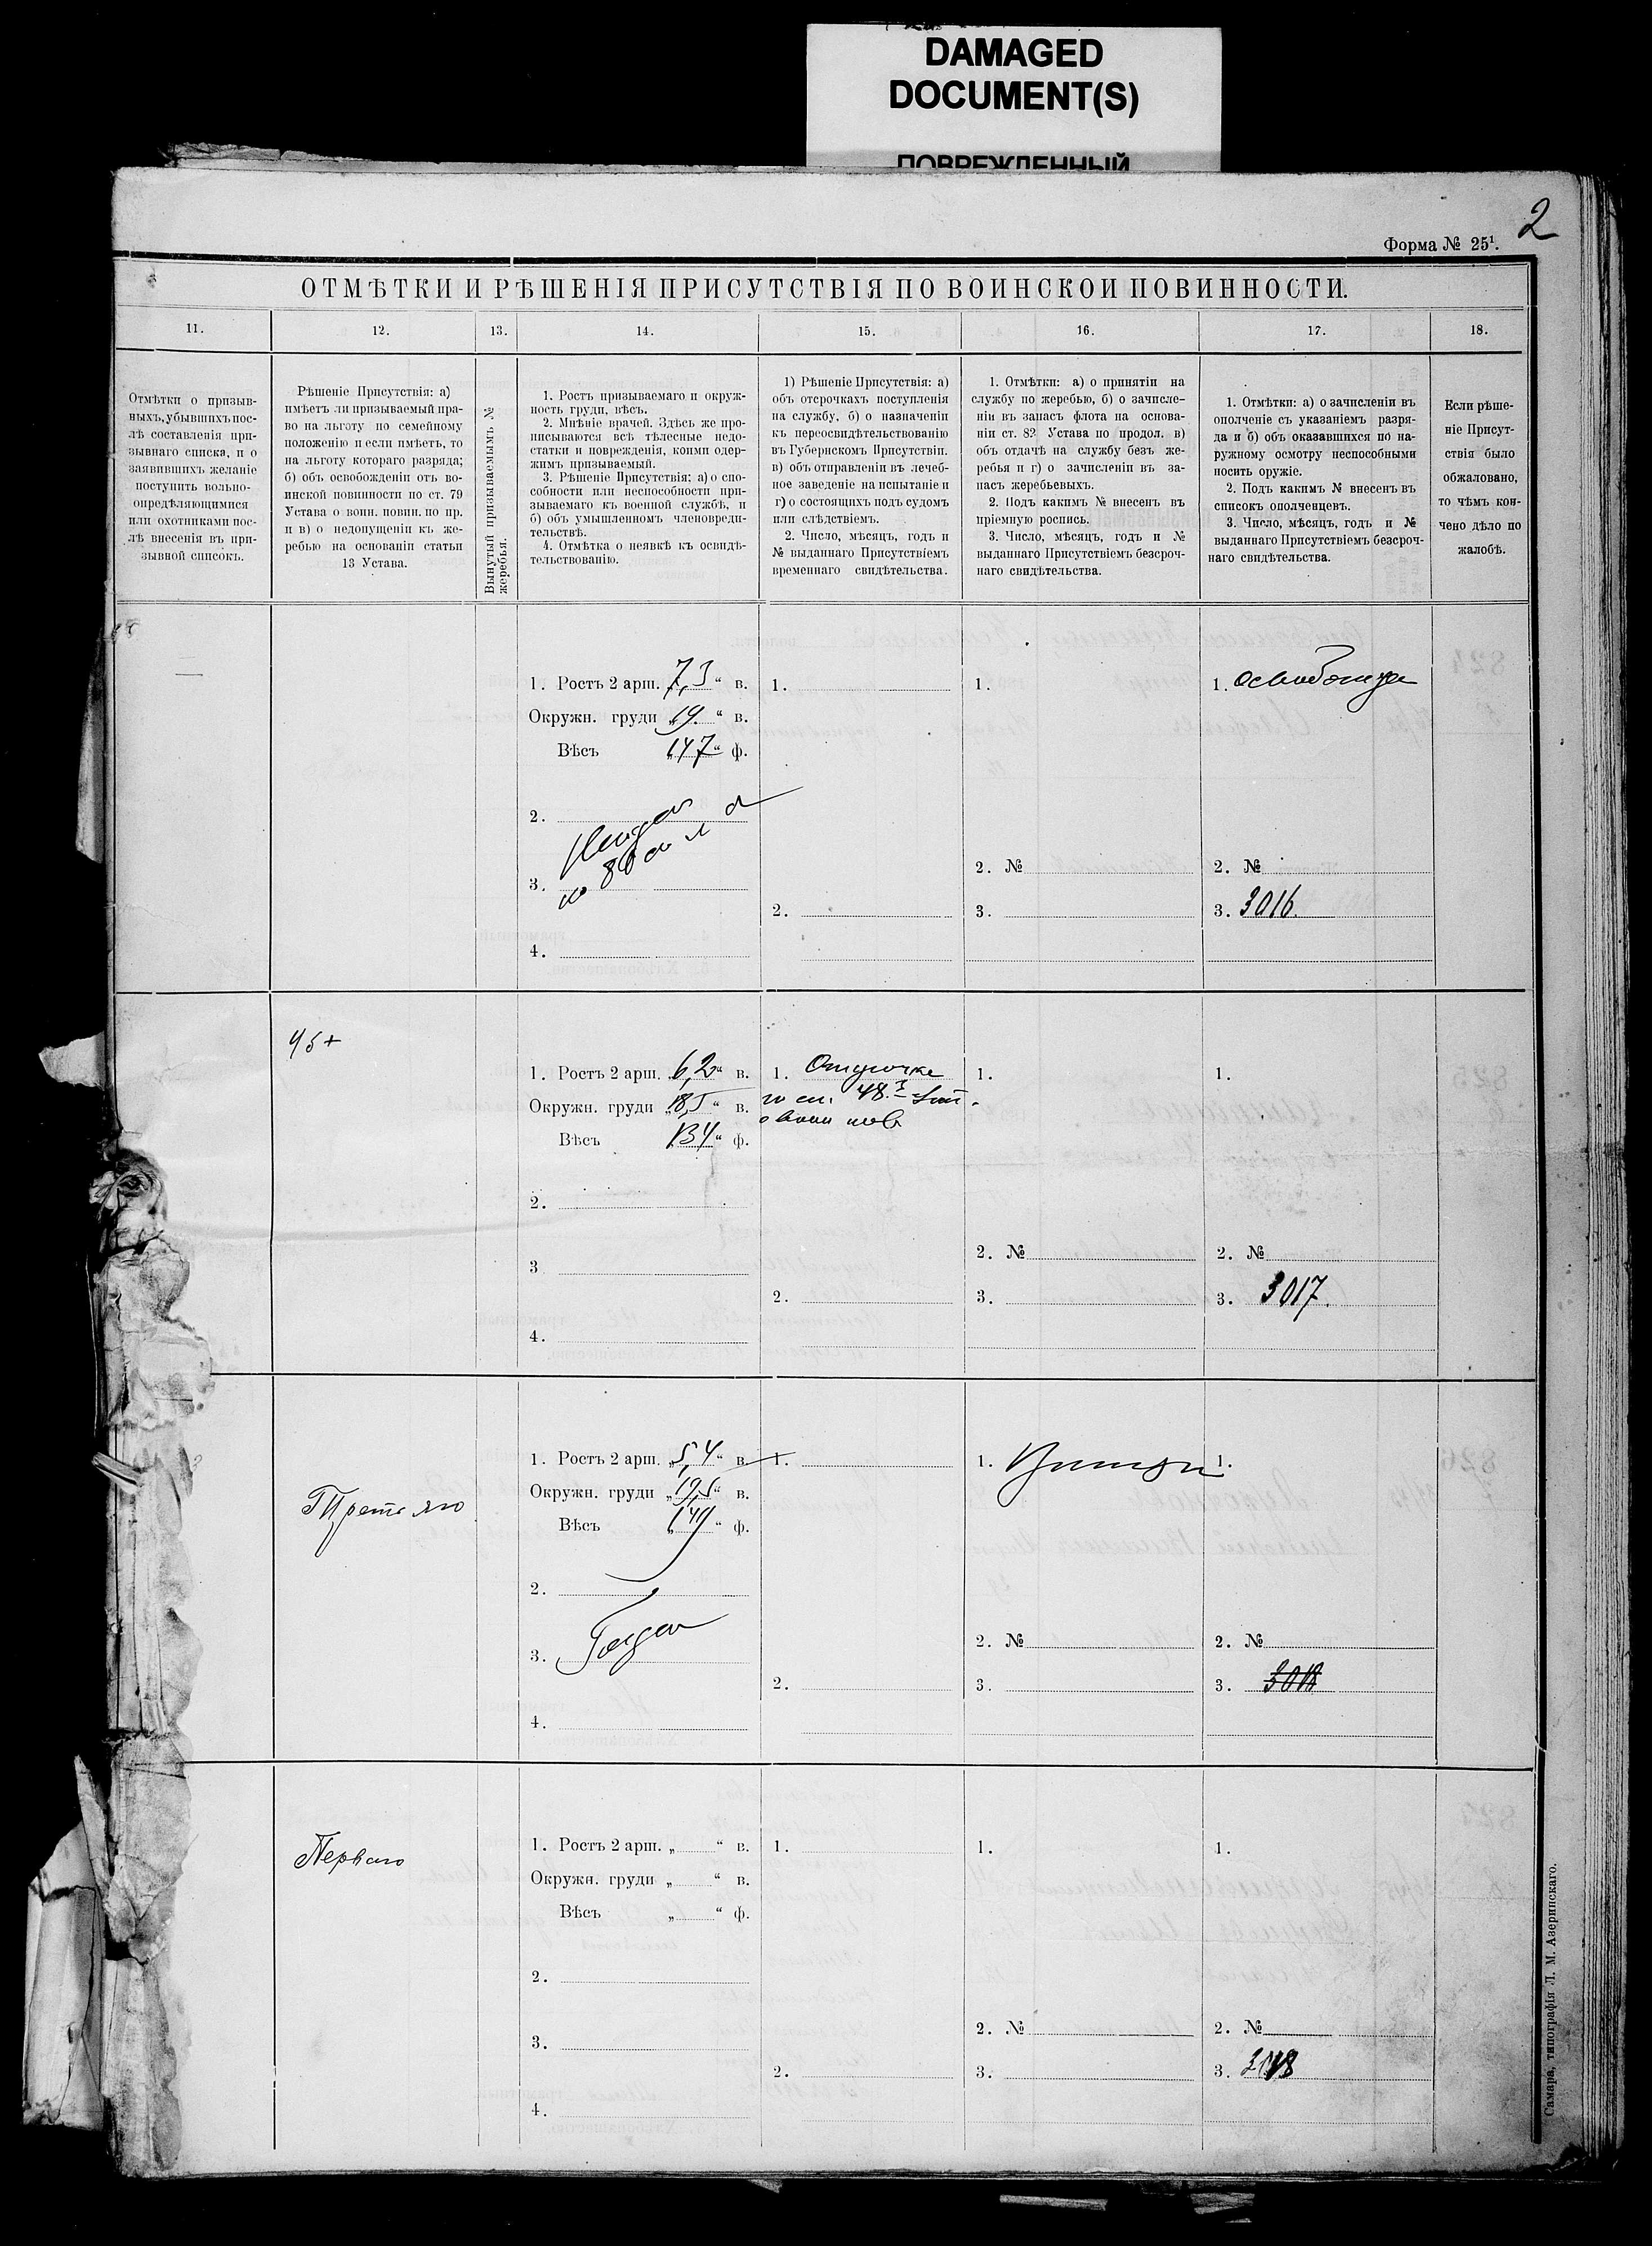 DAMAGED
DOCUMENT(S)
ПОВРЕЖДЕННЫЙ
2
Форма № 25¹.
ОТМѢТКИ И РѢШЕНІЯ ПРИСУТСТВІЯ ПО ВОИНСКОЙ ПОВИННОСТИ.
11.
12.
13.
14.
15.
16.
17.
18.
Отмѣтки о призыв-
ныхъ, убывшихъ пос-
лѣ составленія при-
зывнаго списка, и о
заявившихъ желаніе
поступить вольно-
опредѣляющимися
или охотниками пос-
лѣ внесенія въ при-
зывной списокъ.
Рѣшеніе Присутствія: а)
имѣетъ ли призываемый пра-
во на льготу по семейному
положенію и если имѣетъ, то
на льготу котораго разряда;
б) объ освобожденіи отъ во-
инской повинности по ст. 79
Устава о воин. повин. по пр.
и в) о недопущеніи къ же-
ребью на основаніи статьи
13 Устава.
Вынутый призываемымъ №
жеребья.
1. Ростъ призываемаго и окруж-
ность груди, вѣсъ.
2. Мнѣніе врачей. Здѣсь же про-
писываются всѣ тѣлесные недо-
статки и поврежденія, коими одер-
жимъ призываемый.
3. Рѣшеніе Присутствія: а) о спо-
собности или неспособности при-
зываемаго къ военной службѣ, и
б) объ умышленномъ членовреди-
тельствѣ.
4. Отмѣтка о неявкѣ къ освидѣ-
тельствованію.
1) Рѣшеніе Присутствія: а)
объ отсрочкахъ поступленія
на службу, б) о назначеніи
къ переосвидѣтельствованію
въ Губернскомъ Присутствіи.
в) объ отправленіи въ лечеб-
ное заведеніе на испытаніе и
г) о состоящихъ подъ судомъ
или слѣдствіемъ.
2. Число, мѣсяцъ, годъ и
№ выданнаго Присутствіемъ
временнаго свидѣтельства.
1. Отмѣтки: а) о принятіи на
службу по жеребью, б) о зачисле-
ніи въ запасъ флота на основа-
ніи ст. 82 Устава по продол. в)
объ отдачѣ на службу безъ же-
ребья и г) о зачисленіи въ за-
пасъ жеребьевыхъ.
2. Подъ какимъ № внесенъ въ
пріемную роспись.
3. Число, мѣсяцъ, годъ и №
выданнаго Присутствіемъ безсроч-
наго свидѣтельства.
1. Отмѣтки: а) о зачисленіи въ
ополченіе съ указаніемъ разря-
да и б) объ оказавшихся по на-
ружному осмотру неспособными
носить оружіе.
2. Подъ какимъ № внесенъ въ
списокъ ополченцевъ.
3. Число, мѣсяцъ, годъ и №
выданнаго Присутствіемъ безсроч-
наго свидѣтельства.
Если рѣше-
ніе Присут-
ствія было
обжаловано,
то чѣмъ кон-
чено дѣло по
жалобѣ.
1. Ростъ 2 арш. „7,3“ в.
Окружн. груди „19“ в.
Вѣсъ „147“ ф.
2.
3.
4.
1.
2.
1.
2. №
3.
1.
2. №
3. 3016.
45+
1. Ростъ 2 арш. „6,2“ в.
Окружн. груди „18,5“ в.
Вѣсъ „134“ ф.
2.
3
4.
1. Отсрочка
по ст. 48
2.
1.
2. №
3.
1.
2. №
3. 3017.
Третьяго
1. Ростъ 2 арш. „5,4“ в.
Окружн. груди „19,5“ в.
Вѣсъ „149“ ф.
2.
3. Годен
4.
1.
2.
1. Принят
2. №
3.
1.
2. №
3. 3018
Перваго
1. Ростъ 2 арш. „ “ в.
Окружн. груди „ “ в.
Вѣсъ „ “ ф.
2.
3.
4.
1.
2.
1.
2. №
3.
1.
2. №
3. 3018
Самара, типографія Л. М. Азеринскаго.